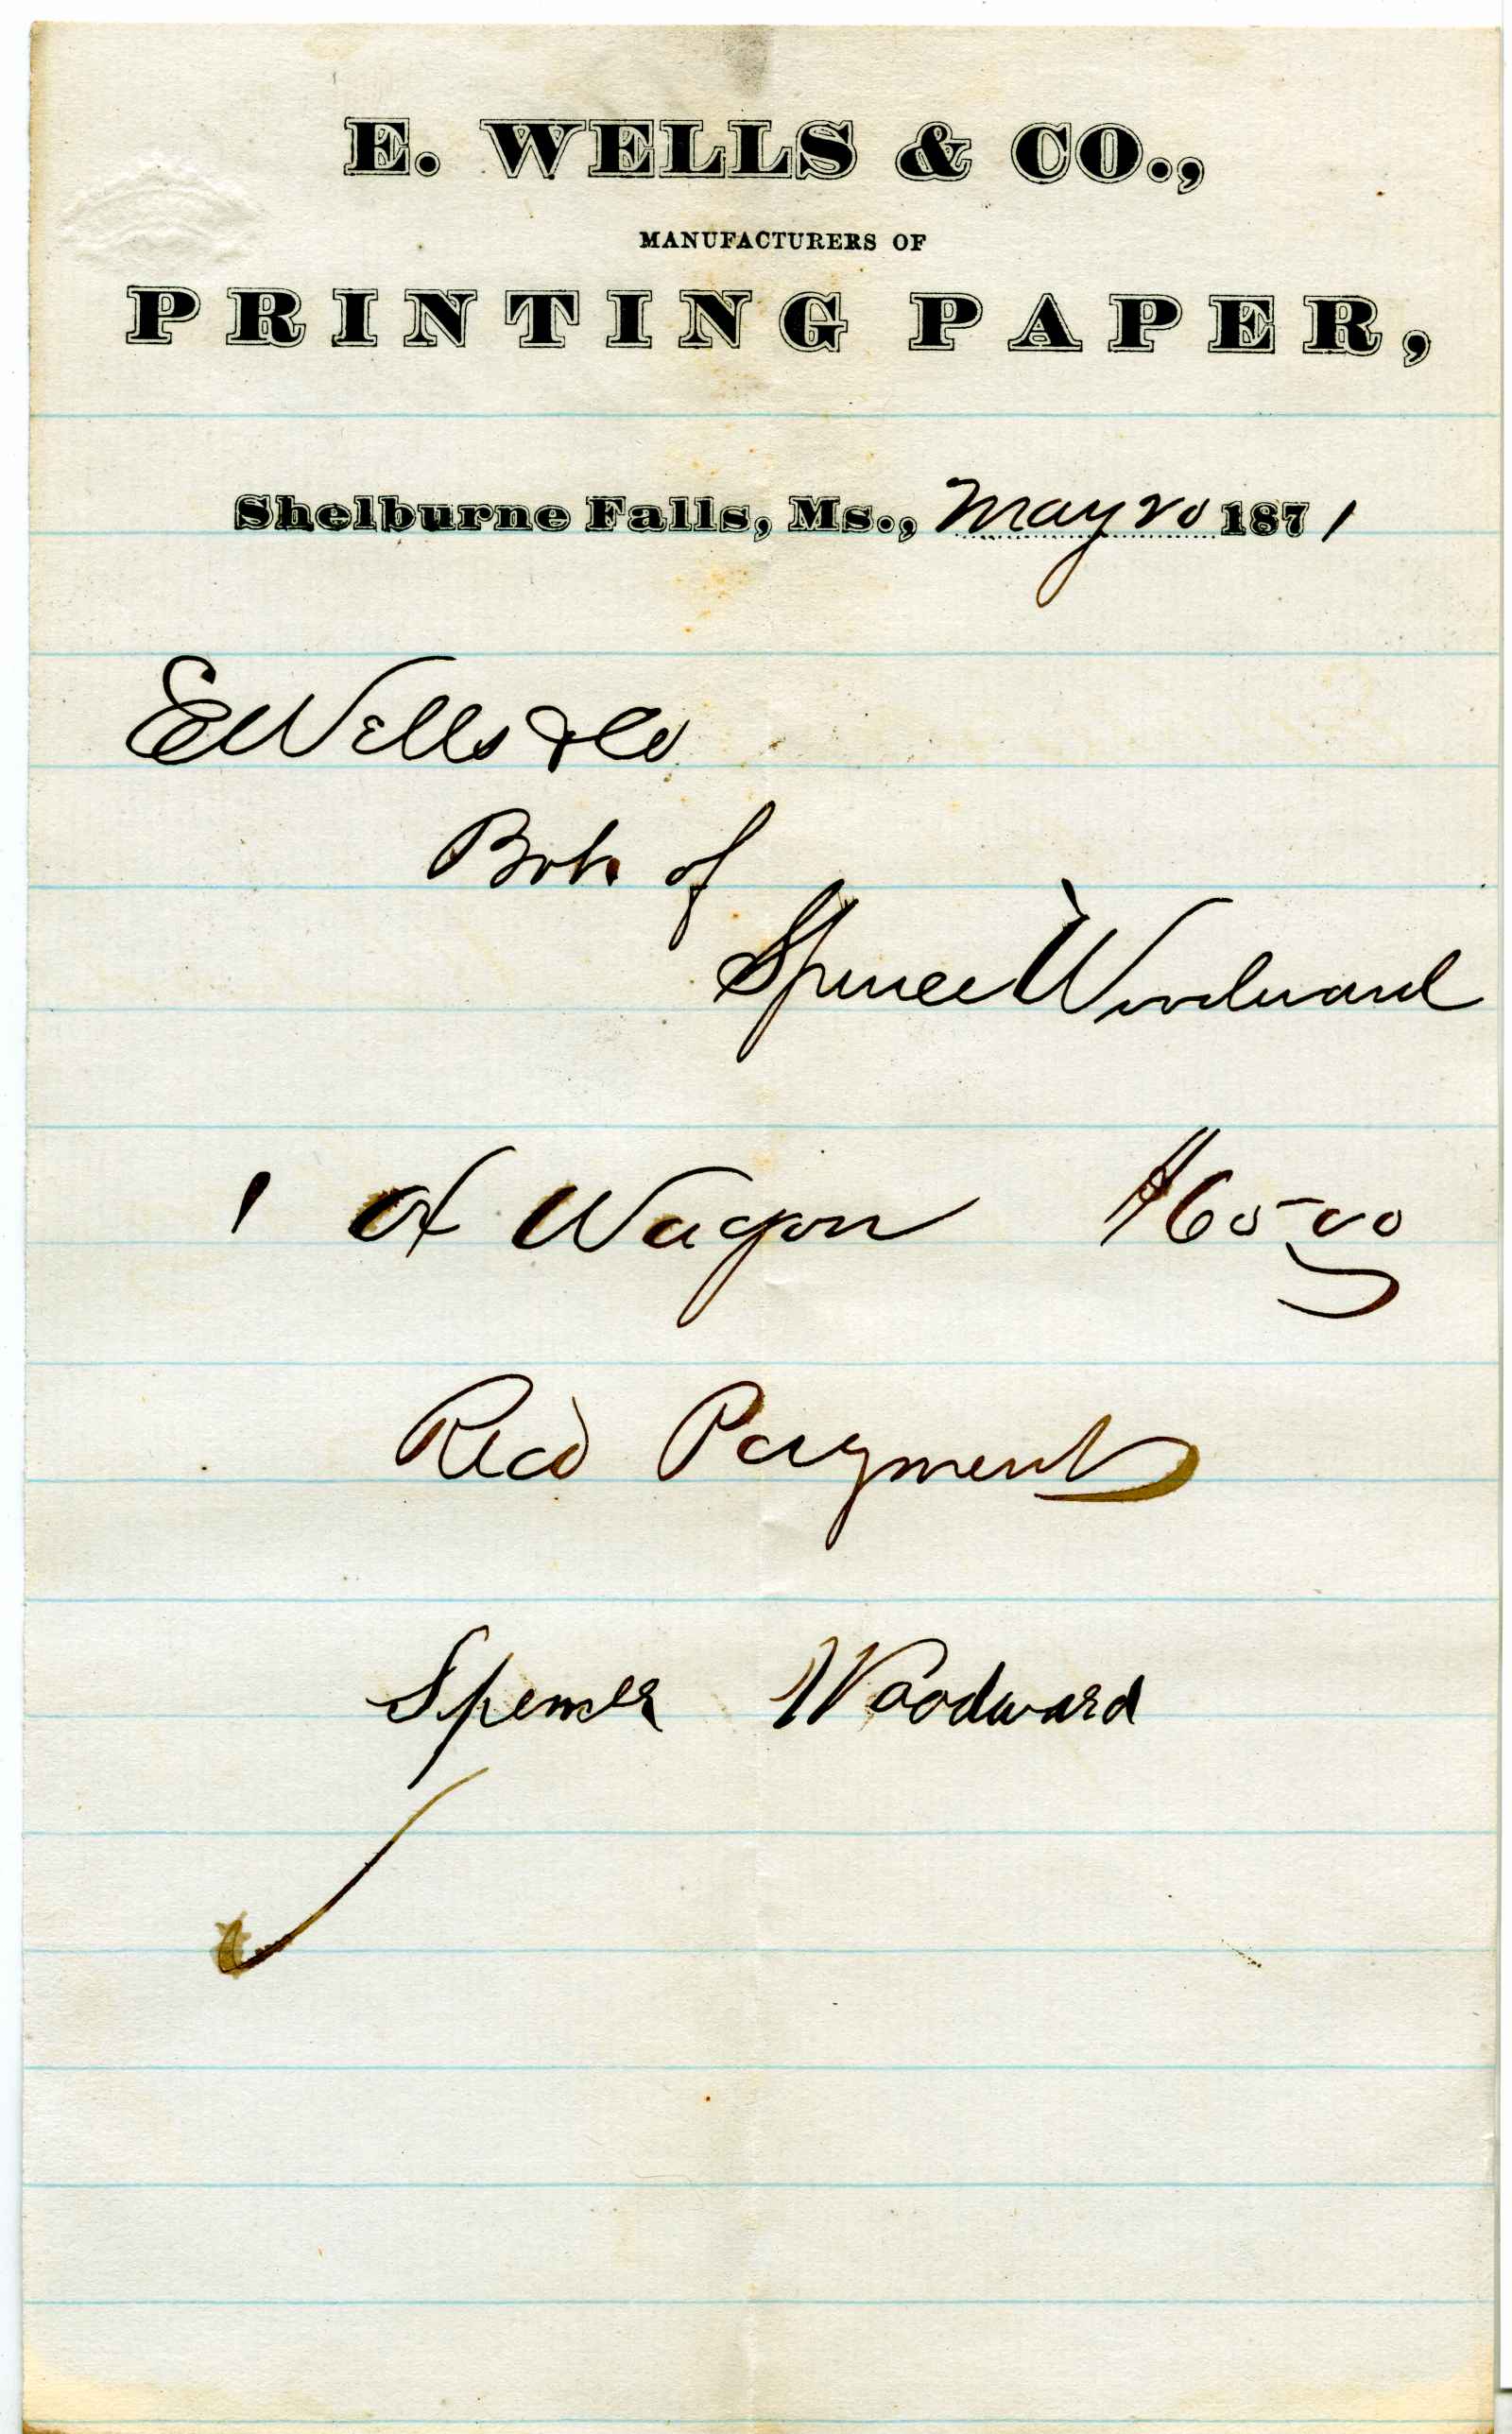 E. WELLS & CO.,
MANUFACTURERS OF
PRINTING PAPER,
Shelburne Falls, Ms., May 20 1871
E Wells & Co
Bot. of
Spencer Woodward
1 Ox Wagon $60.00
Recd Payment
Spencer Woodward